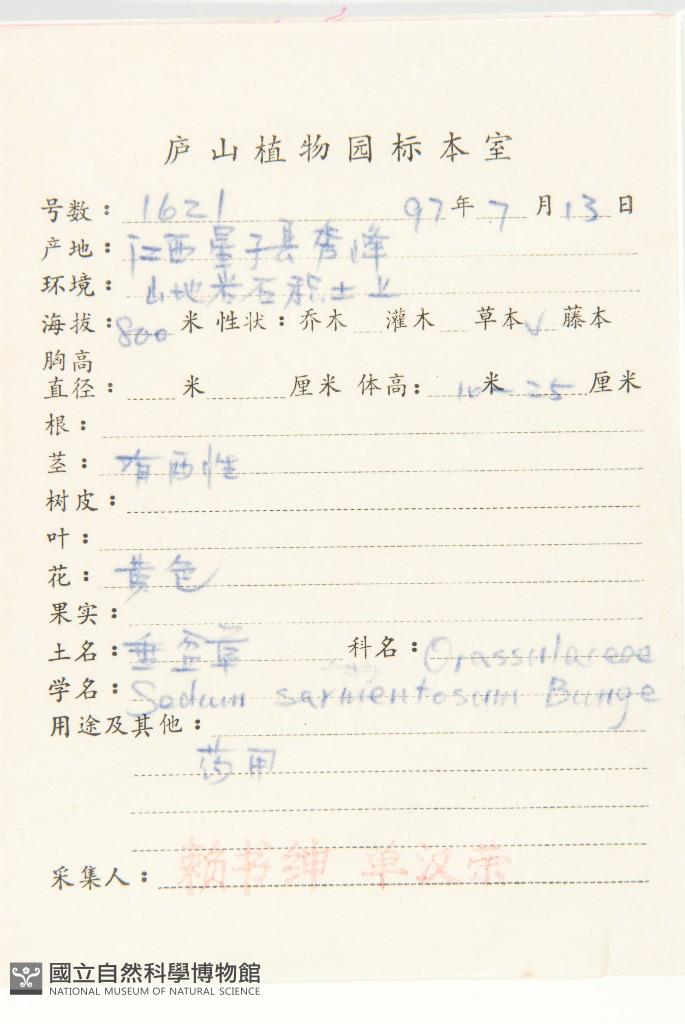 庐山植物园标本室
号数: 1621 97年7月13日
产地: 江西星子县秀峰
环境: 山地米石积土上
海拔: 800米 性状: 乔木 灌木 草本√ 藤本
胸高
直径: 米 厘米 体高: 10米-25厘米
根:
茎: 有两性
树皮:
叶:
花: 黄色
果实:
土名: 垂盆草 科名: Crassulaceae
学名: Sedum sarmentosum Bunge
用途及其他:
药用
采集人: 赖书绅 单汉荣
國立自然科學博物館
NATIONAL MUSEUM OF NATURAL SCIENCE